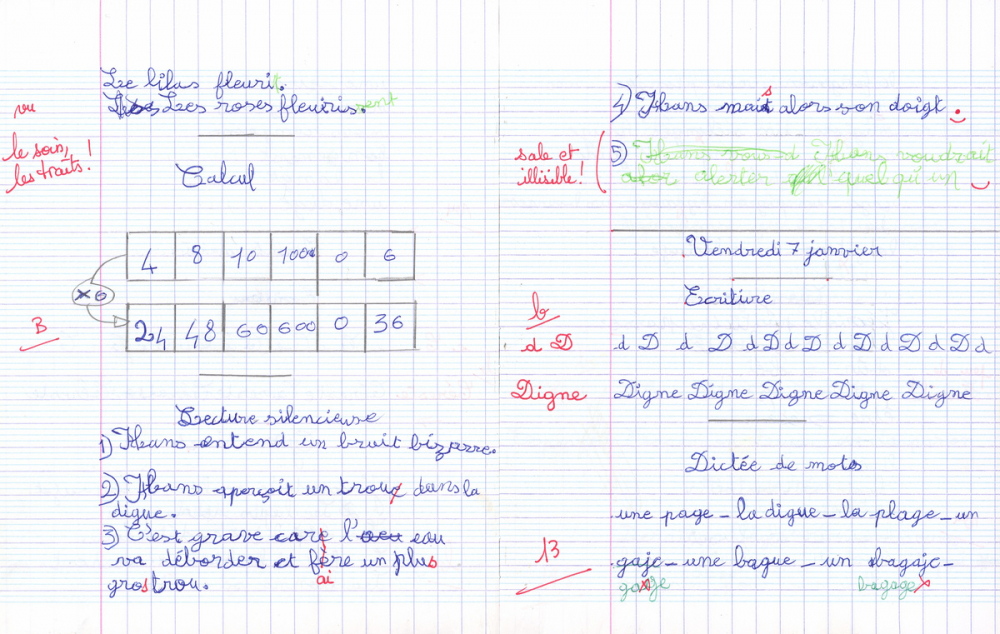 Le lilas fleurit.
Les roses fleurissent.
vu
le soin, !
les traits.
Calcul
4 8 10 100 0 6
×6
24 48 60 600 0 36
B
Lecture silencieuse
1) Hans entend un bruit bizarre.
2) Hans aperçoit un trou dans la
digue.
3) C'est grave car l' eau
va déborder et fère un plus
ai
gros trou.
4) Hans mais alors son doigt.
sale et
illisible!
5) Hans voudrait
alerter quelqu'un
Vendredi 7 janvier
Ecriture
b
d D d D d D d D d D d D d D d D d
Digne Digne Digne Digne Digne Digne
Dictée de mots
une page - la digue - la plage - un
13
gaje - une bague - un bagaje -
gage bagage